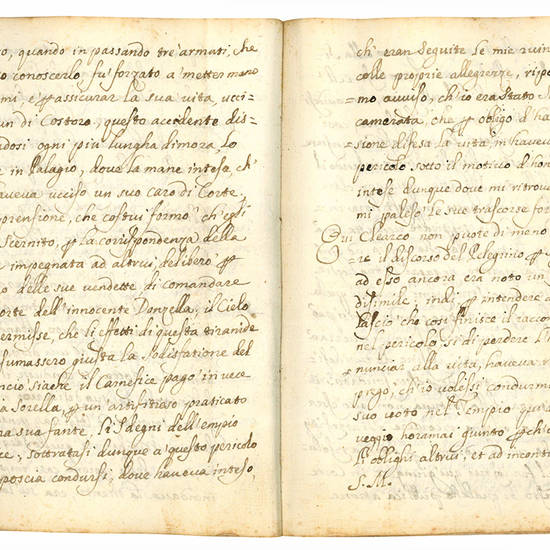 ro, quando in passando tre armati, che
to conoscerlo, fu' forzato a' metter mano
mi, e assicurar la sua vita, ucci-
un di Costoro, questo accidente dis-
adosi ogni piu lungha dimora lo
e in Palagio, dove la mane intese, ch'
haveva ucciso un suo caro di Corte.
prensione, che costui formò ch'egli
Scernito, la corrispondenza della
impegnata ad altrui, deliberò
o delle sue vendette di Comandare
orte dell'innocente Donzella, il Cielo
ermisse, che li effetti di questa tiranide
fumassero giusta la sodisfatione del
ricio siache il Carnefice pagò in vece
a Sorella, un artifitioso praticato
na sua fante. Li Sdegni dell'empio
ce, sottratasi dunque a' questo pericolo
poscia condursi, dove haveva inteso,
ch'eran Seguite le mie ruin
colle proprie allegrenze, rispo
=mo avviso, ch'io era Stato S
camerata che obligo d'ha
=sione difesa la vita, m'havev
pericolo sotto il motivo d'hon
intese dunque dove mi ritrov
mi palesò le sue trascorse for
Qui Clearco non puote di meno
=re il discorso del Pelegrino
ad esso ancora era noto un
disimile; indi intendere a
lascio che così finisse il racco
nel pericolo si di perdere l'
nunciar alla vita, haveva r
pregò, ch'io volessi condurme
suo voto nel Tempio
veggio horamai quinto
l'oblighi altrui, et ad inconti
S. M.